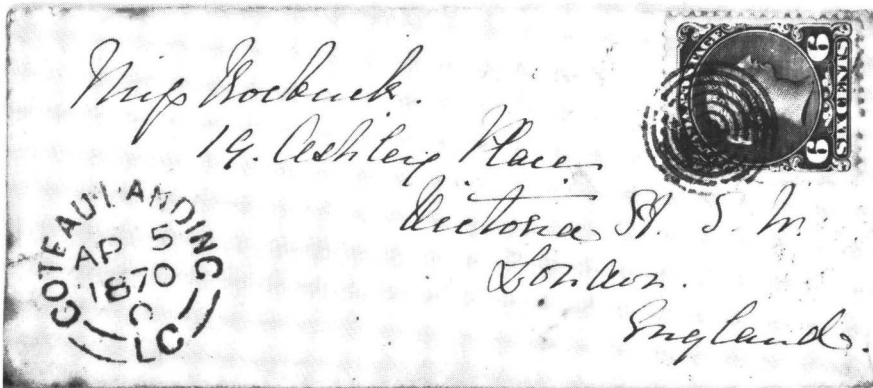 Miss Roebuck.
19. Ashley Place
Victoria St S. W.
London.
England.
COTEAU LANDING
AP 5
1870
LC
POSTAGE
SIX CENTS
6
6